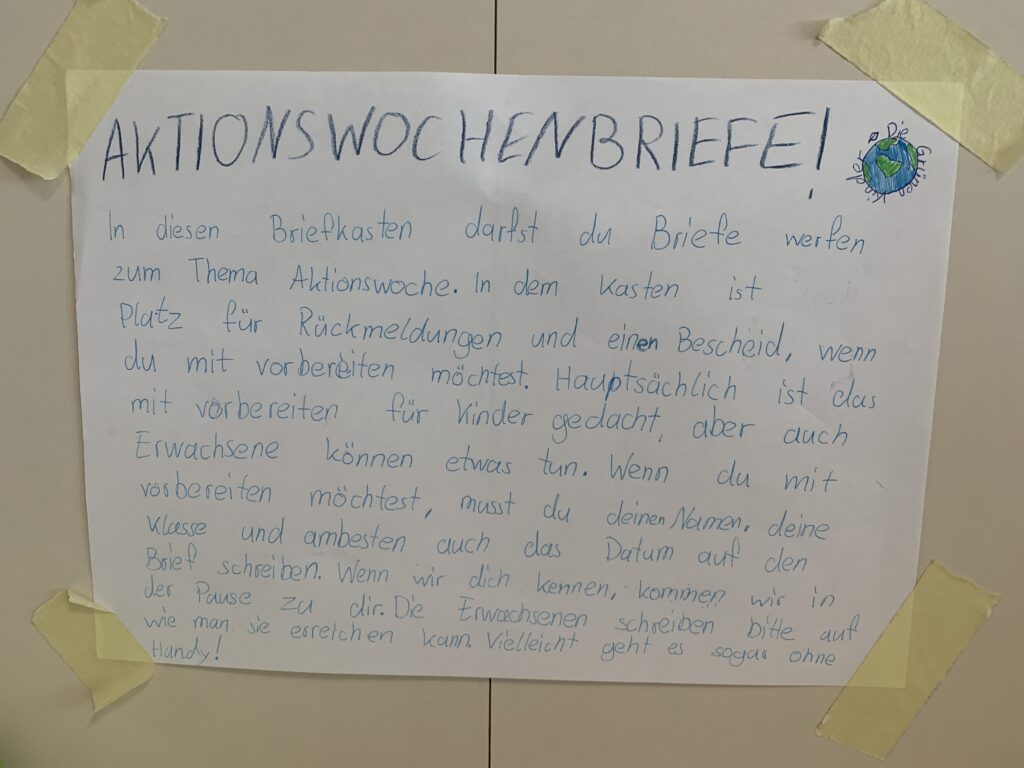 AKTIONSWOCHENBRIEFE!
Die Grünen Kinder
In diesen Briefkasten darfst du Briefe werfen
zum Thema Aktionswoche. In dem Kasten ist
Platz für Rückmeldungen und einen Bescheid, wenn
du mit vorbereiten möchtest. Hauptsächlich ist das
mit vorbereiten für Kinder gedacht, aber auch
Erwachsene können etwas tun. Wenn du mit
vorbereiten möchtest, musst du deinen Namen, deine
Klasse und ambesten auch das Datum auf den
Brief schreiben. Wenn wir dich kennen, kommen wir in
der Pause zu dir. Die Erwachsenen schreiben bitte auf
wie man sie erreichen kann. Vielleicht geht es sogar ohne
Handy!